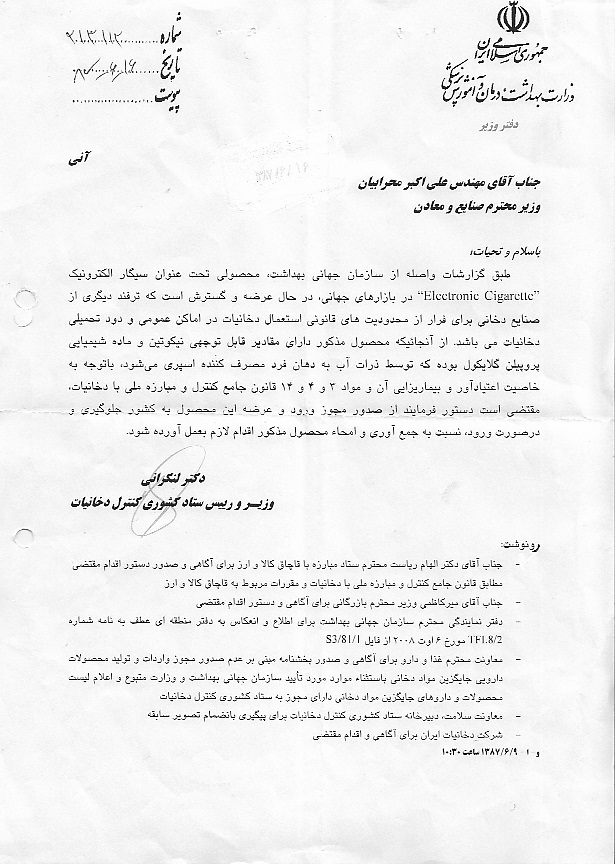 جمهوری اسلامی ایران
وزارت بهداشت، درمان و آموزش پزشکی
دفتر وزیر
شماره
تاریخ
پیوست
آنی
جناب آقای مهندس علی اکبر محرابیان
وزیر محترم صنایع و معادن
باسلام و تحیات؛
طبق گزارشات واصله از سازمان جهانی بهداشت، محصولی تحت عنوان سیگار الکترونیک
"Electronic Cigarette" در بازارهای جهانی، در حال عرضه و گسترش است که ترفند دیگری از
صنایع دخانی برای فرار از محدودیت های قانونی استعمال دخانیات در اماکن عمومی و دود تحمیلی
دخانیات می باشد. از آنجائیکه محصول مذکور دارای مقادیر قابل توجهی نیکوتین و ماده شیمیایی
پروپیلن گلایکول بوده که توسط ذرات آب به دهان فرد مصرف کننده اسپری می‌شود، باتوجه به
خاصیت اعتیادآور و بیماریزایی آن و مواد ۳ و ۴ و ۱۴ قانون جامع کنترل و مبارزه ملی با دخانیات،
مقتضی است دستور فرمایند از صدور مجوز ورود و عرضه این محصول به کشور جلوگیری و
درصورت ورود، نسبت به جمع آوری و امحاء محصول مذکور اقدام لازم بعمل آورده شود.
دکتر لنکرانی
وزیر و رییس ستاد کشوری کنترل دخانیات
رونوشت:
- جناب آقای دکتر الهام ریاست محترم ستاد مبارزه با قاچاق کالا و ارز برای آگاهی و صدور دستور اقدام مقتضی
مطابق قانون جامع کنترل و مبارزه ملی با دخانیات و مقررات مربوط به قاچاق کالا و ارز
- جناب آقای میرکاظمی وزیر محترم بازرگانی برای آگاهی و دستور اقدام مقتضی
- دفتر نمایندگی محترم سازمان جهانی بهداشت برای اطلاع و انعکاس به دفتر منطقه ای عطف به نامه شماره
TFI.8/2 مورخ ۶ اوت ۲۰۰۸ از فایل S3/81/1
- معاونت محترم غذا و دارو برای آگاهی و صدور بخشنامه مبنی بر عدم صدور مجوز واردات و تولید محصولات
دارویی جایگزین مواد دخانی باستثناء موارد مورد تأیید سازمان جهانی بهداشت و وزارت متبوع و اعلام لیست
محصولات و داروهای جایگزین مواد دخانی دارای مجوز به ستاد کشوری کنترل دخانیات
- معاونت سلامت، دبیرخانه ستاد کشوری کنترل دخانیات برای پیگیری بانضمام تصویر سابقه
- شرکت دخانیات ایران برای آگاهی و اقدام مقتضی
و ۱- ۱۳۸۷/۶/۹ ساعت ۱۰:۳۰